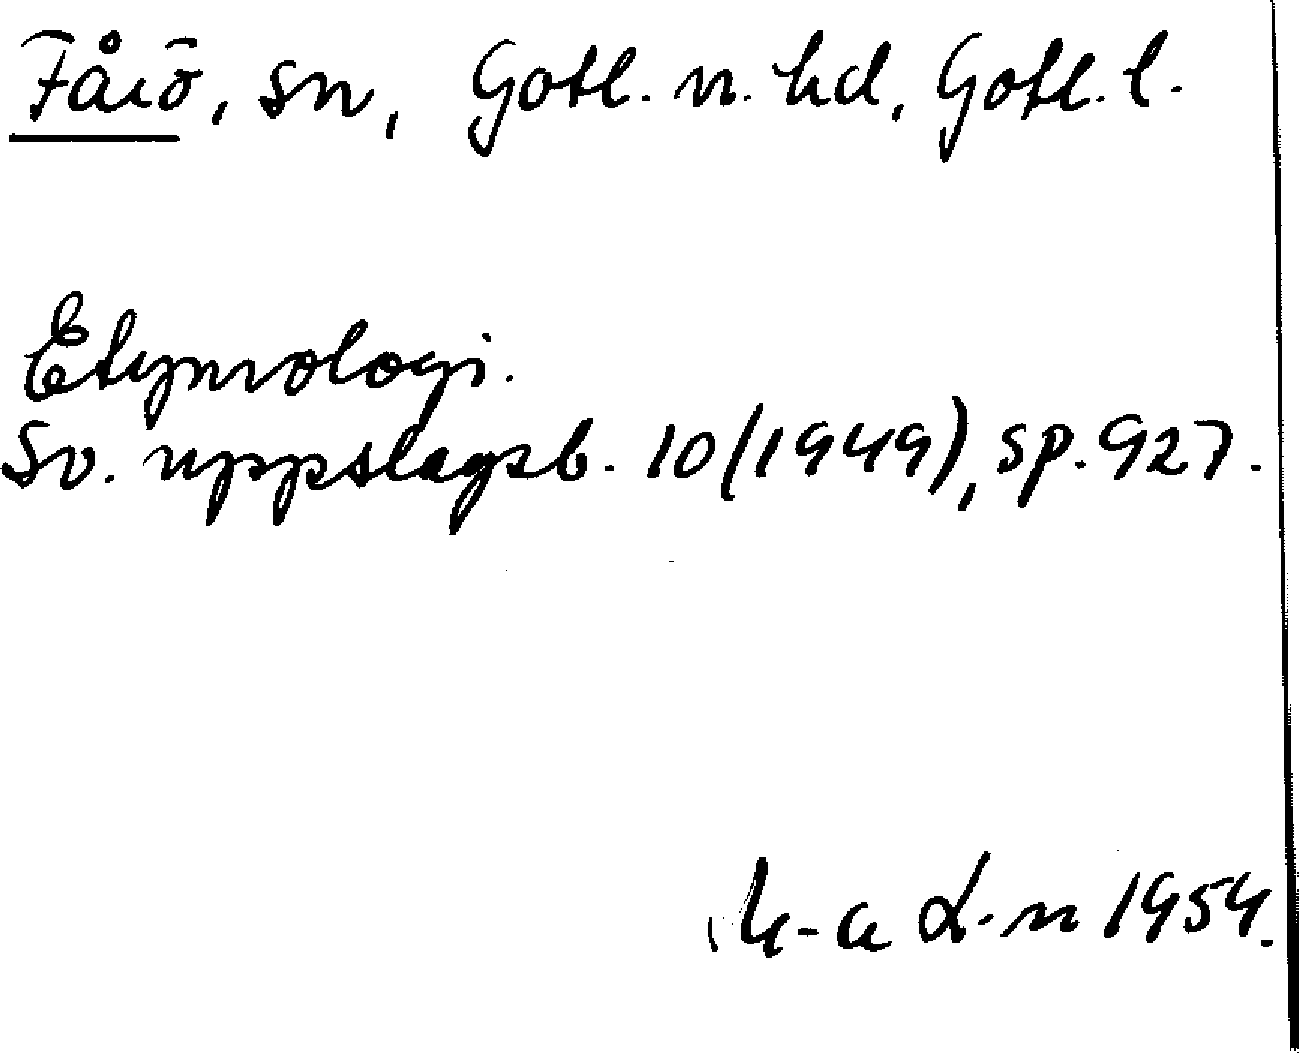 Fårö, sn, Gotl. n. hd, Gotl. l.
Etymologi.
Sv. uppslagsb. 10 (1949), sp. 927.
1954.